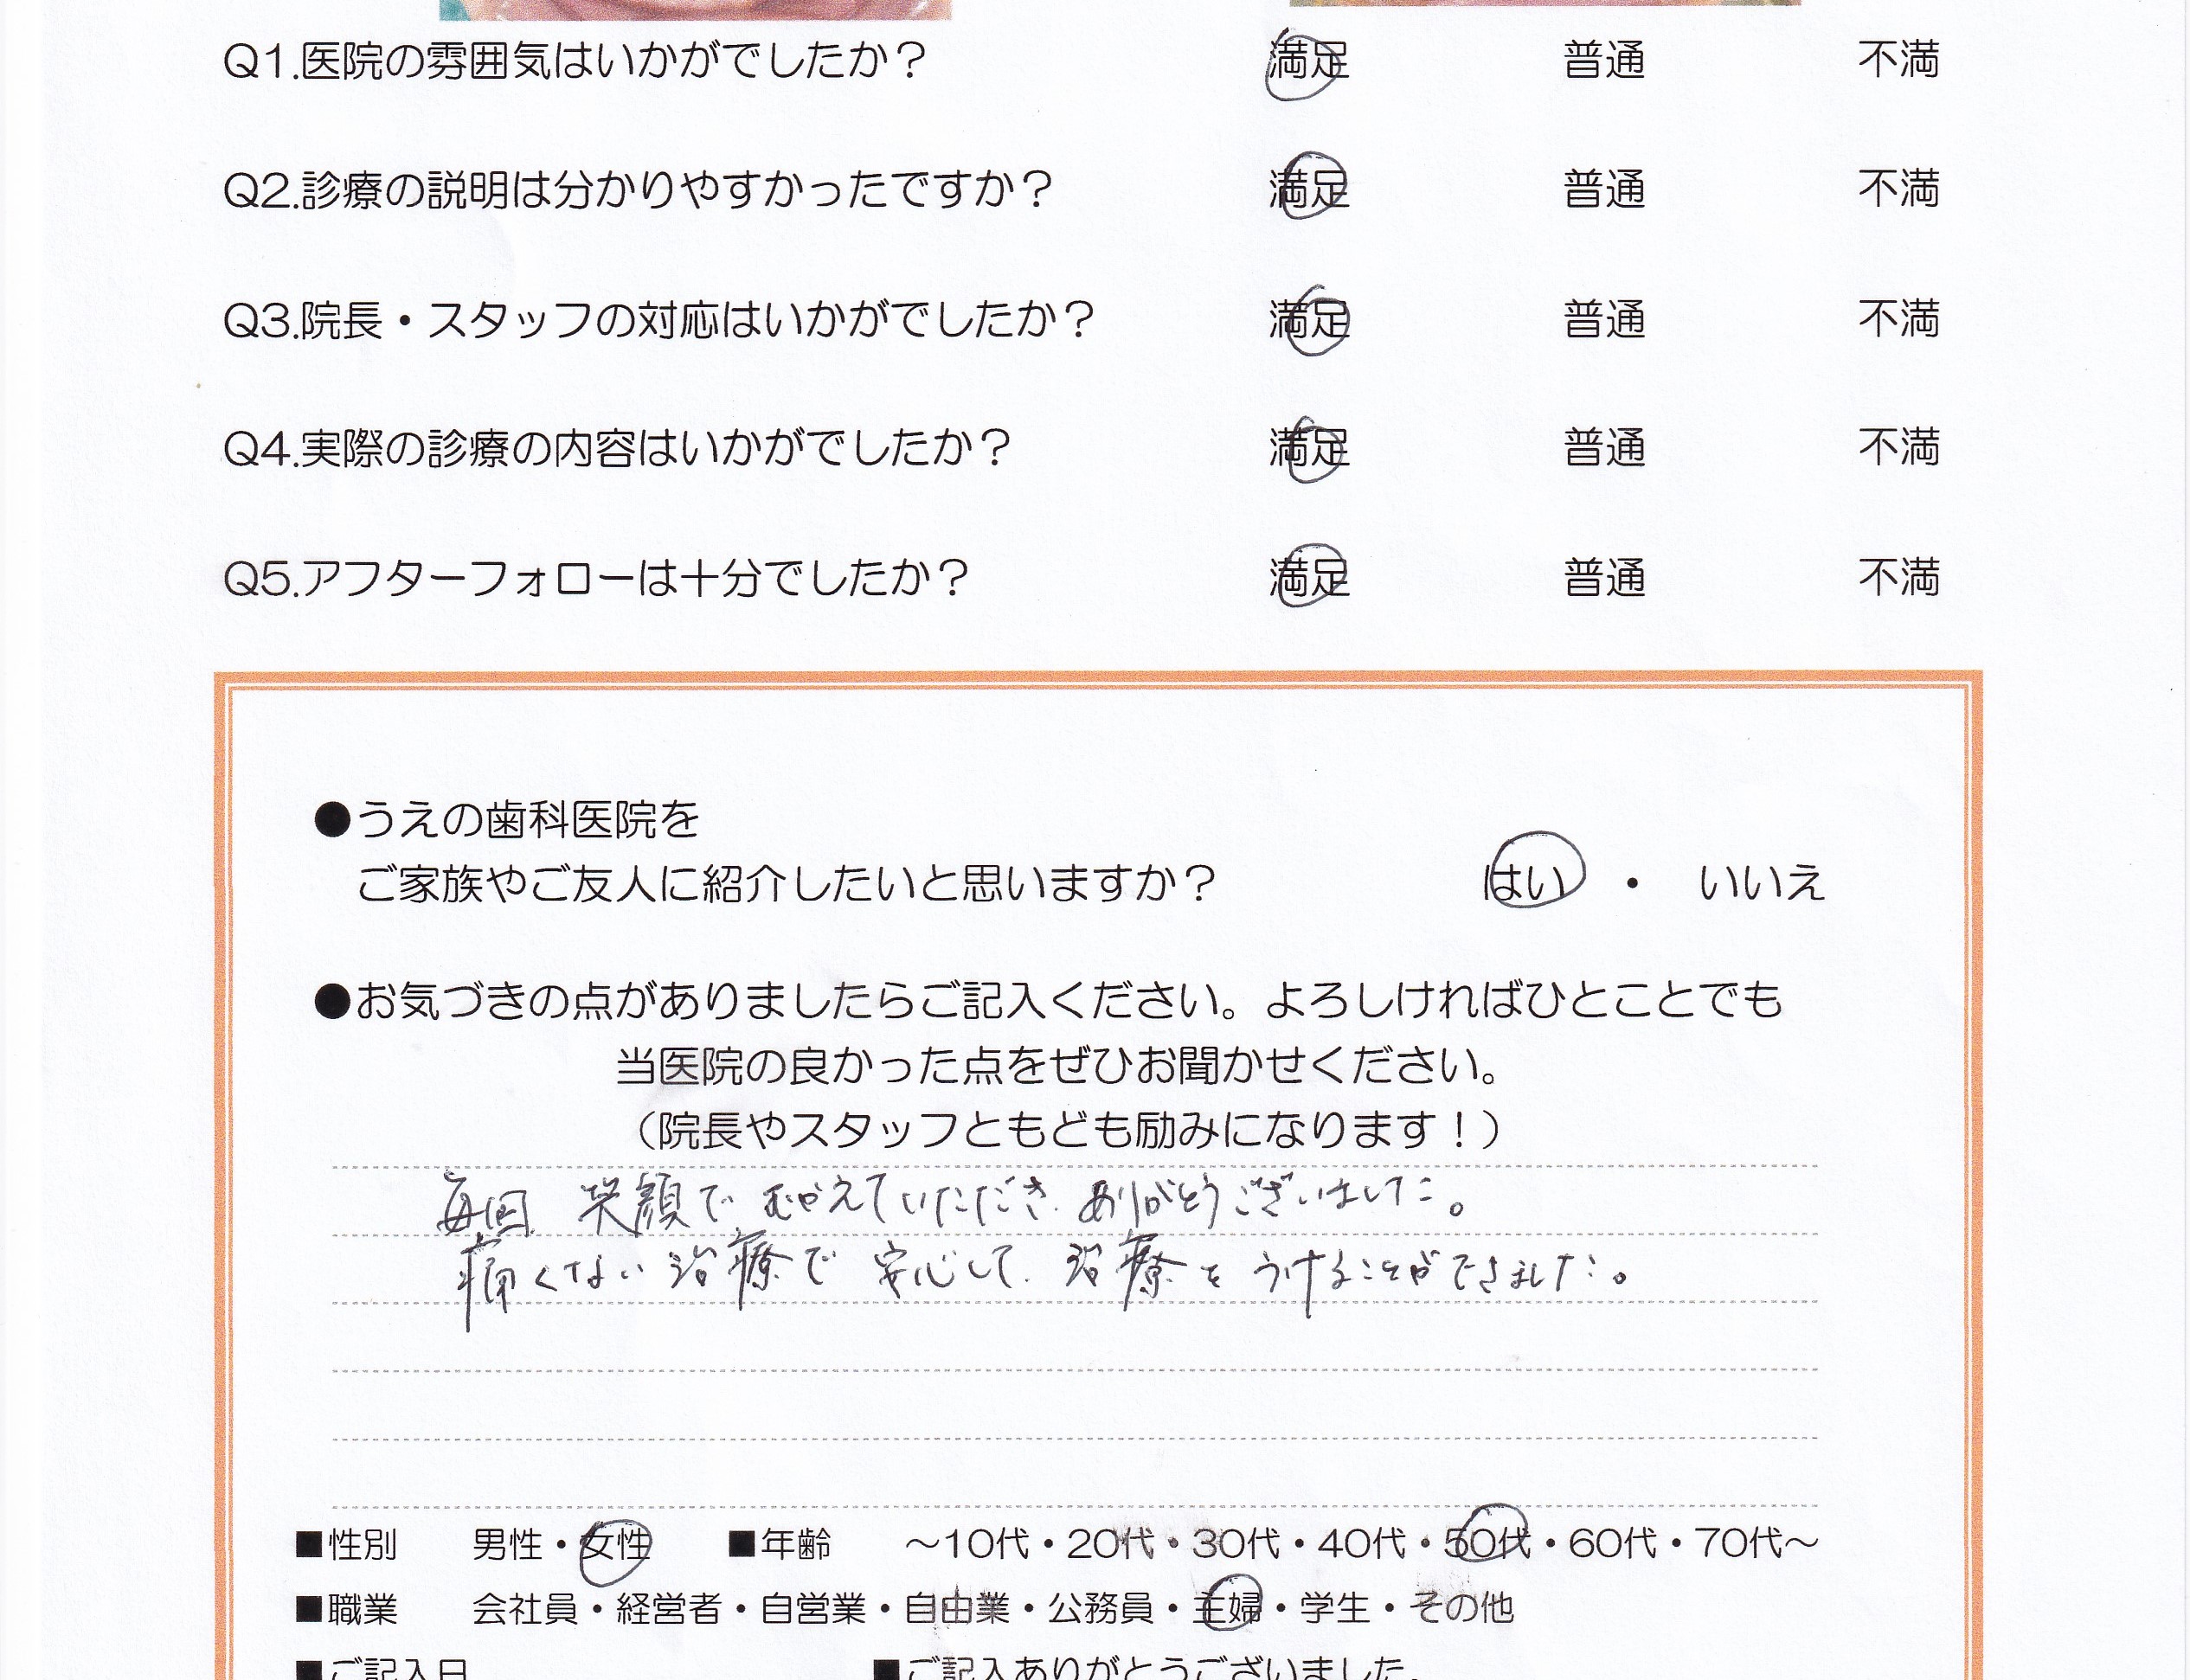 Q1.医院の雰囲気はいかがでしたか？ 満足 普通 不満
Q2.診療の説明は分かりやすかったですか？ 満足 普通 不満
Q3.院長・スタッフの対応はいかがでしたか？ 満足 普通 不満
Q4.実際の診療の内容はいかがでしたか？ 満足 普通 不満
Q5.アフターフォローは十分でしたか？ 満足 普通 不満
●うえの歯科医院を
ご家族やご友人に紹介したいと思いますか？ はい ・ いいえ
●お気づきの点がありましたらご記入ください。よろしければひとことでも
当医院の良かった点をぜひお聞かせください。
（院長やスタッフともども励みになります！）
毎回 笑顔で むかえていただき ありがとうございました。
痛くない 治療で 安心して 治療を うけることができました。
■性別 男性・女性 ■年齢 〜10代・20代・30代・40代・50代・60代・70代〜
■職業 会社員・経営者・自営業・自由業・公務員・主婦・学生・その他
■ご記入日 ■ご記入ありがとうございました。